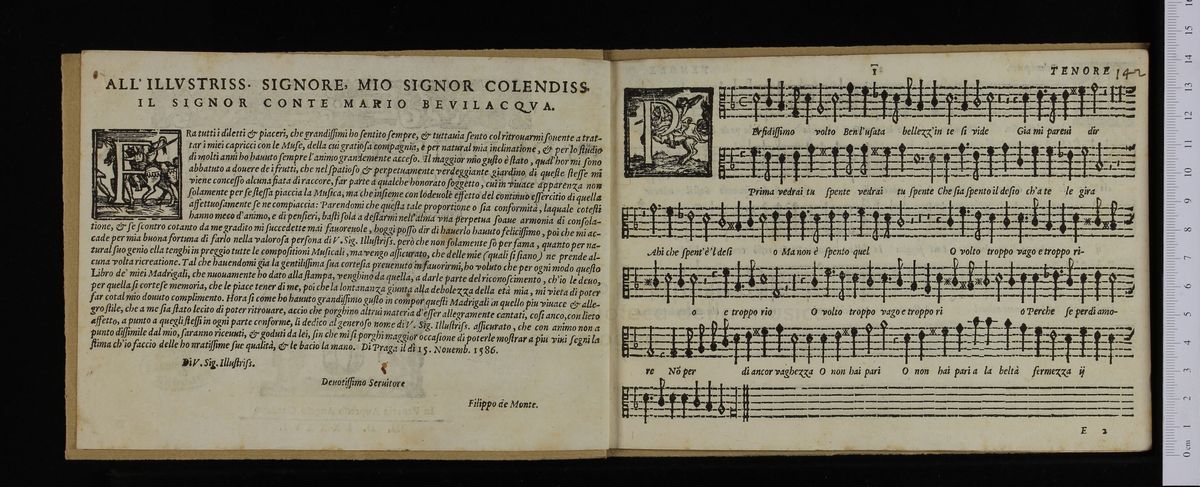 ALL' ILLVSTRISS. SIGNORE, MIO SIGNOR COLENDISS.
IL SIGNOR CONTE MARIO BEVILACQVA.
FRa tutti i diletti & piaceri, che grandissimi ho sentito sempre, & tuttauia sento col ritrouarmi souente a trat-
tar i miei capricci con le Muse, della cui gratiosa compagnia, è per natural mia inclinatione, & per lo studio
di molti anni ho hauuto sempre l'animo grandemente acceso. Il maggior mio gusto è stato, qual'hor mi sono
abbatuto a douere de i frutti, che nel spatioso & perpetuamente verdeggiante giardino di queste stesse mi
viene concesso alcuna fiata di raccore, far parte a qualche honorato soggetto, cui in viuace apparenza non
solamente per se stessa piaccia la Musica, ma che insieme con lodeuole effetto del continuo essercitio di quella
affettuosamente se ne compiaccia: Parendomi che questa tale proportione o sia conformità, laquale cotesti
hanno meco d'animo, e di pensieri, basti sola a destarmi nell'alma vna perpetua soaue armonia di consola-
tione, & se scontro cotanto da me gradito mi succedette mai fauoreuole, hoggi posso dir di hauerlo hauuto felicissimo, poi che mi ac-
cade per mia buona fortuna di farlo nella valorosa persona di V. Sig. Illustriss. però che non solamente sò per fama, quanto per na-
tural suo genio ella tenghi in preggio tutte le compositioni Musicali, ma vengo assicurato, che delle mie (quali si siano) ne prende al-
cuna volta ricreatione. Tal che hauendomi gia la gentilissima sua cortesia preuenuto in fauorirmi, ho voluto che per ogni modo questo
Libro de' miei Madrigali, che nuouamente ho dato alla stampa, venghino da quella, a darle parte del riconoscimento, ch'io le deuo,
per quella sì cortese memoria, che le piace tener di me, poi che la lontananza giunta alla debolezza della età mia, mi vieta di poter
far cotal mio douuto complimento. Hora sì come ho hauuto grandissimo gusto in compor questi Madrigali in quello piu viuace & alle-
gro stile, che a me sia stato lecito di poter ritrouare, accio che porghino altrui materia d'esser allegramente cantati, così anco, con lieto
affetto, a punto a quegli stessi in ogni parte conforme, li dedico al generoso nome di V. Sig. Illustriss. assicurato, che con animo non a
punto dissimile dal mio, saranno riceuuti, & goduti da lei, sin che mi si porghi maggior occasione di poterle mostrar a piu viui segni la
stima ch'io faccio delle honoratissime sue qualità, & le bacio la mano. Di Praga il dì 15. Nouemb. 1586.
Di V. Sig. Illustriss.
Deuotissimo Seruitore
Filippo de Monte.
1 TENORE 142
PErfidissimo volto Ben l'usata bellezz' in te si vide Gia mi pareui dir
Prima vedrai tu spente vedrai tu spente Che sia spento il desio ch'a te le gira
Ahi che spent'è'l desi o Ma non è spento quel O volto troppo vago e troppo ri-
o e troppo rio O volto troppo vago e troppo ri o Perche se perdi amo-
re Nõ per di ancor vaghezza O non hai pari O non hai pari a la beltà fermezza ij
E 2